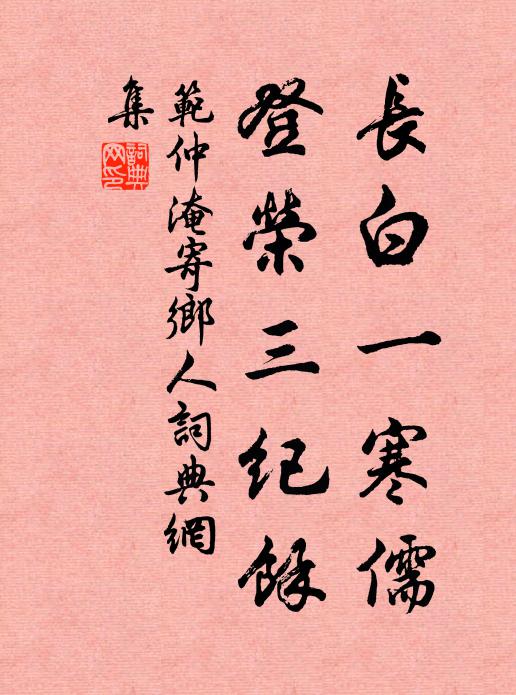 長白一寒儒
登榮三紀餘
範仲淹寄鄉人詞典網
集
詞典
网印